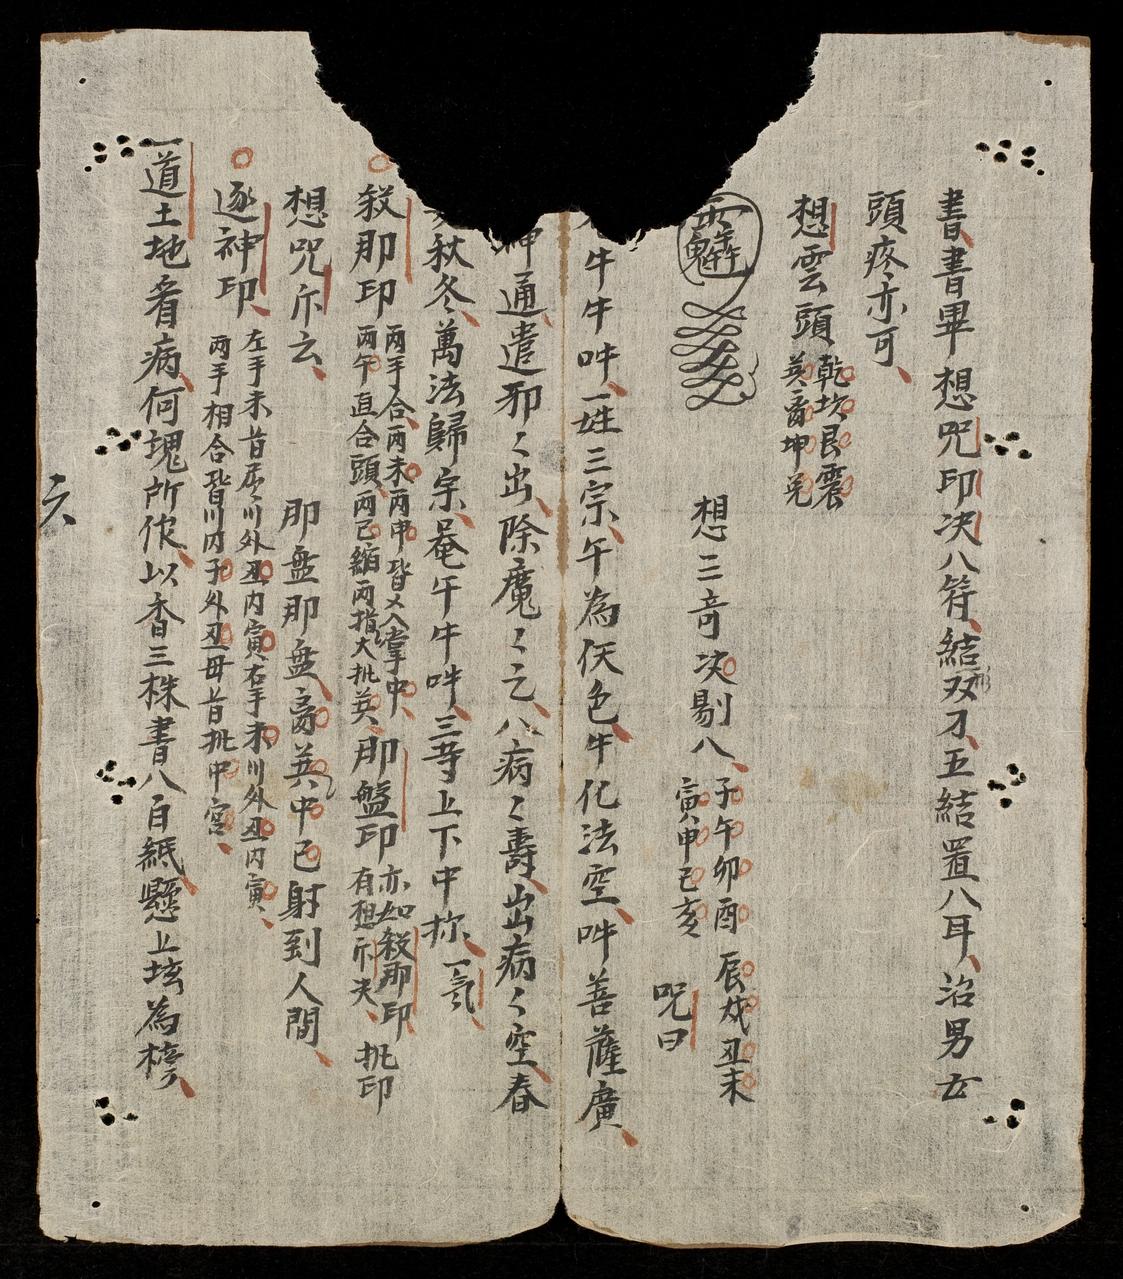 書書畢想咒印决八符結双刀五結置八耳治男女
頭疼亦可
想雲頭
乾坎艮震
英离坤兑
想三奇决剔八
子午卯酉
寅申巳亥
辰戌丑未
咒曰
牛牛吽一姓三宗午為仸色牛化法空吽善薩廣
神通遣邪々出除魔々亡八病々壽出病々空春
秋冬萬法歸宗菴午牛吽三等上下中你一氣
殺那印
兩手合兩未兩申皆乂入掌中
兩午直合頭兩巳縮兩指大批英
即盤印
亦如殺那印
有想尓夫
批印
想咒尓云
即盤那盤离英中巳射到人間
逐神印
左手未苜居川外丑内寅右手未川外丑内寅
兩手相合皆川内子外丑毋苜批中宮
一道土地看病何塊所作以香三株書八百紙懸上坛為榜
六